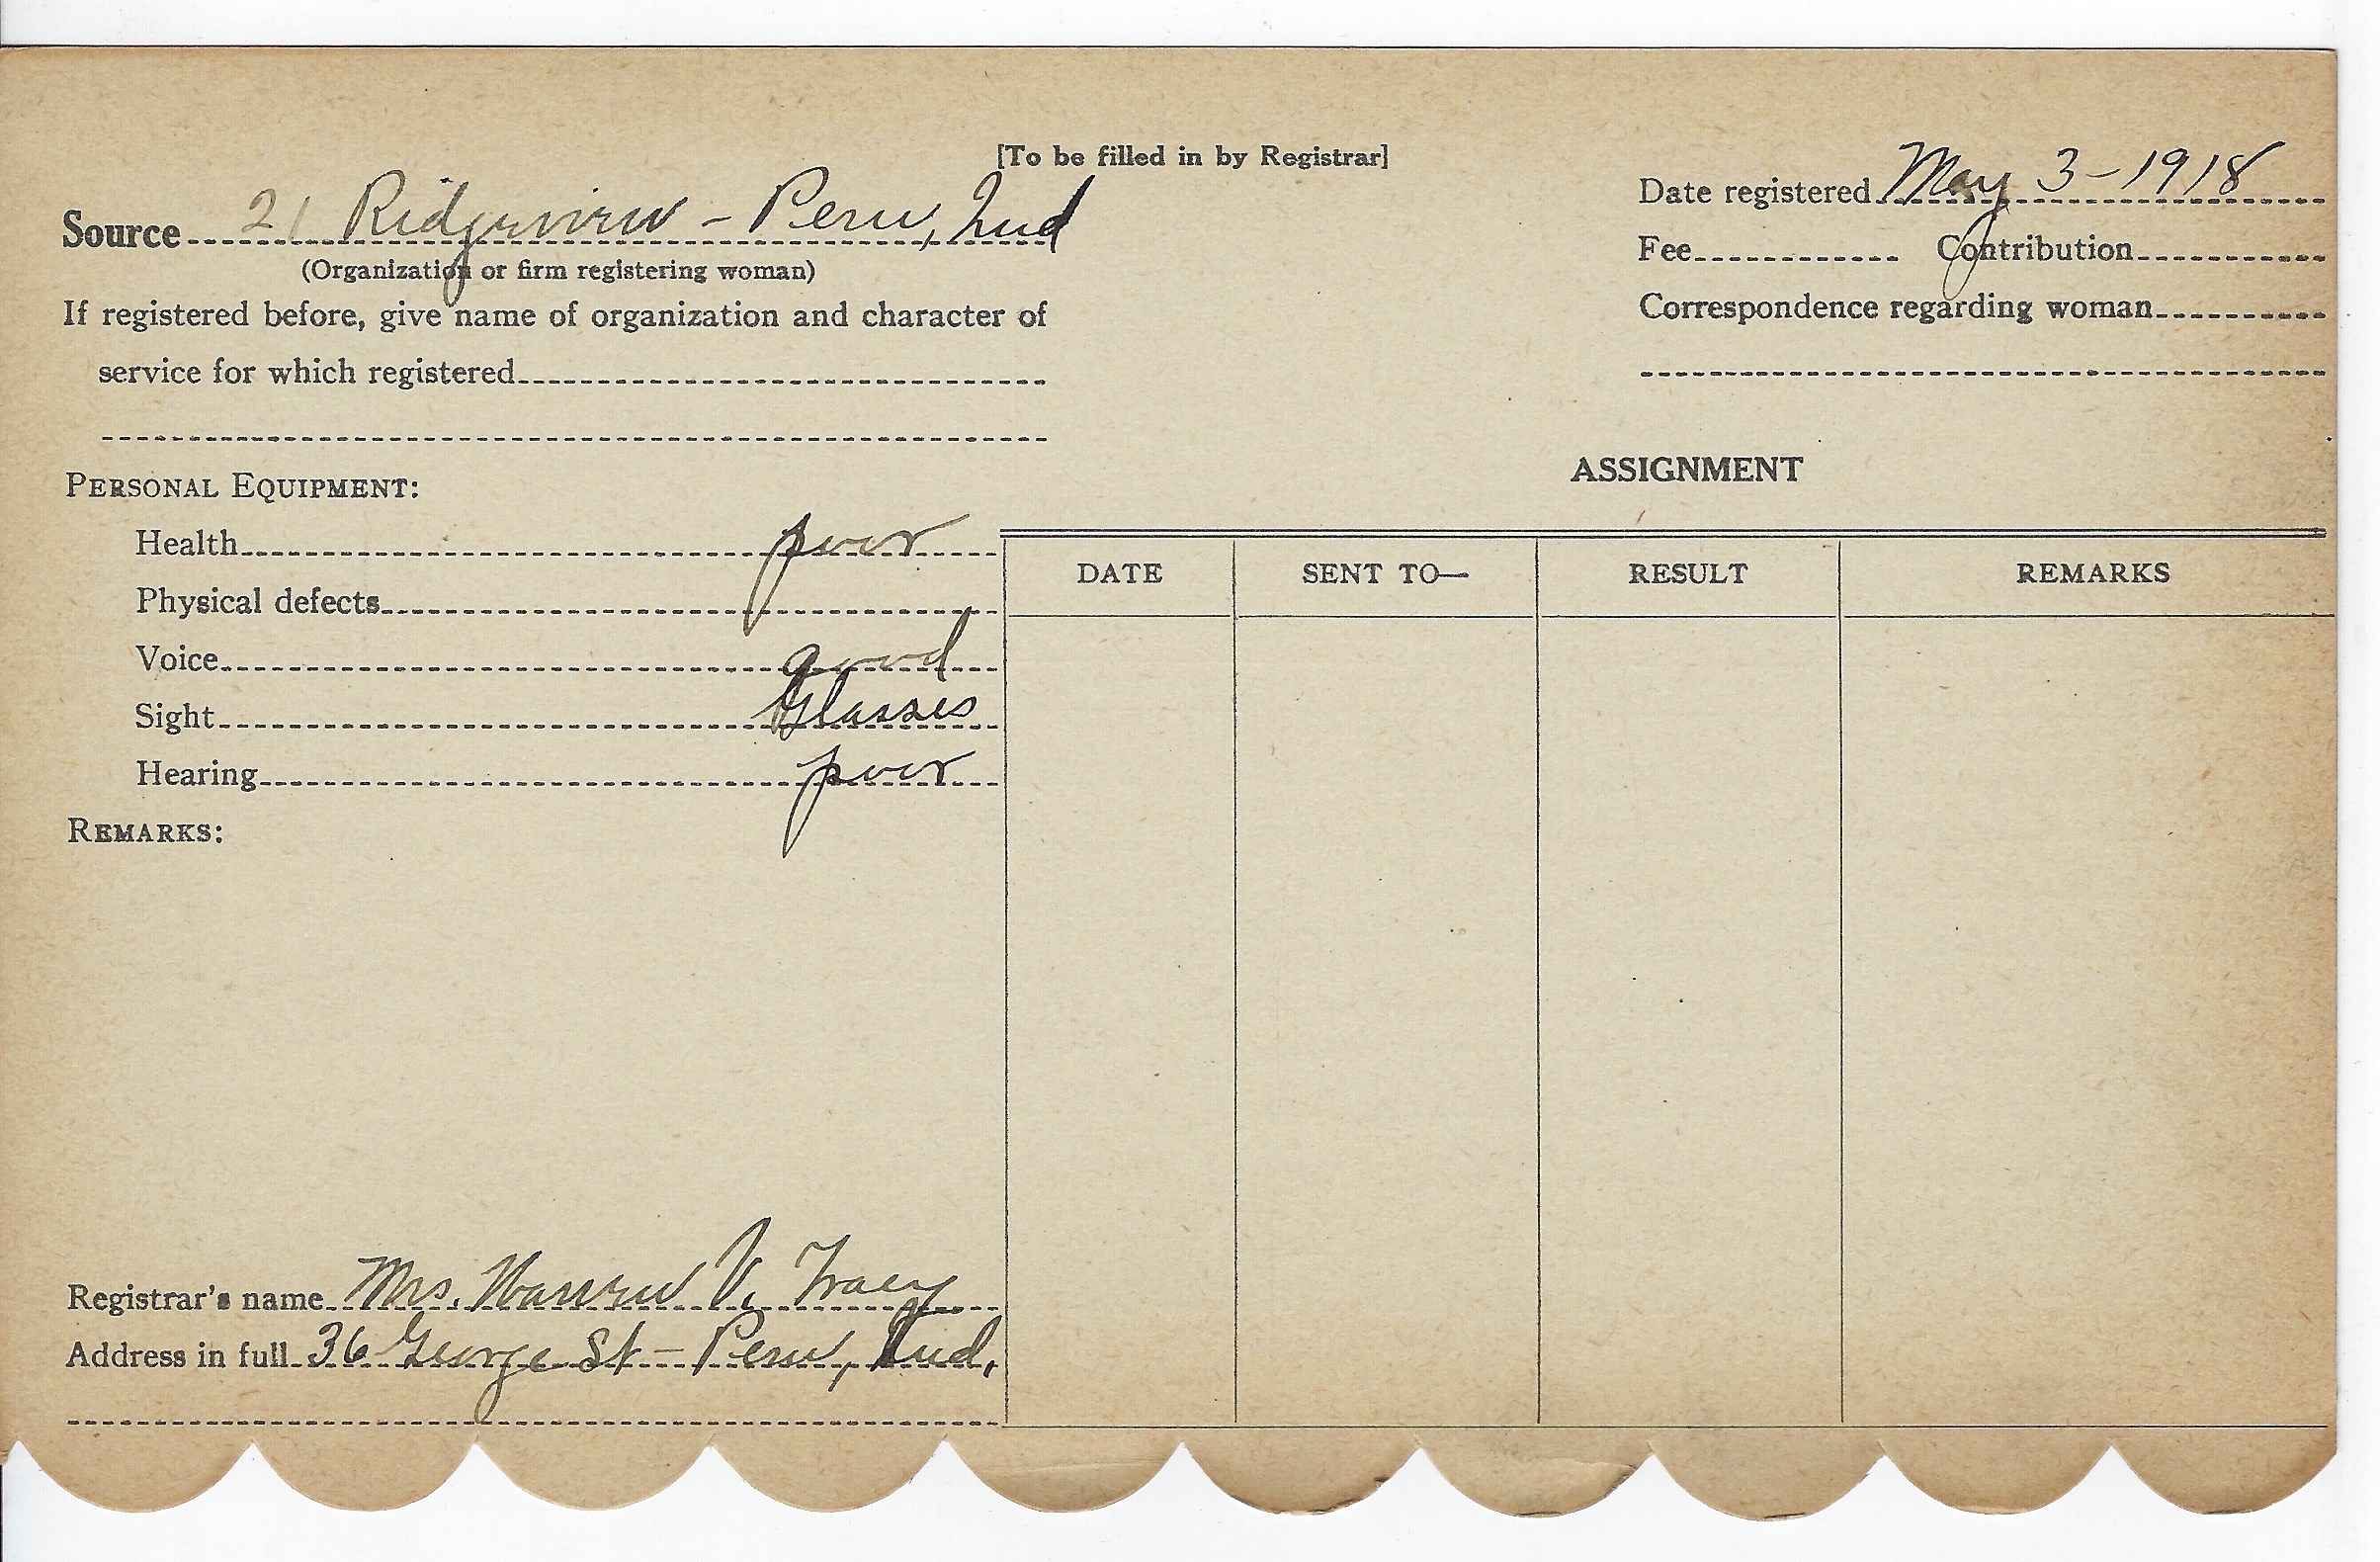 [To be filled in by Registrar]
Source 21 Ridgeview - Peru, Ind
(Organization or firm registering woman)
If registered before, give name of organization and character of
service for which registered
Date registered May 3-1918
Fee Contribution
Correspondence regarding woman
PERSONAL EQUIPMENT:
Health poor
Physical defects
Voice good
Sight Glasses
Hearing poor
REMARKS:
Registrar's name Mrs. Warren V. Tracy
Address in full 36 George St - Peru, Ind.
ASSIGNMENT
DATE SENT TO— RESULT REMARKS